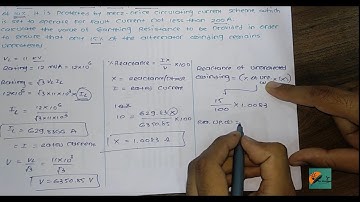 at 10%. It is protected by merz price circulating current scheme which
is set to operate for fault current not less than 200A.
calculate the value of Earthing Resistance to be provided in order
to ensure that only 15% of the alternator winding remains
unprotected.
VL = 11 kV
Rating = 12 MVA
Rating = √3 VL IL
IL = 12×10⁶
√3×11×10³
IL = 629.8366 A
I = rated current
V = VL/√3 = 11×10³/√3
V = 6350.85 V
% Reactance = IX/V × 100
X = Reactance/Phase
I = rated current
10 = 629.83 X / 6350.85 × 100
X = 1.0083 Ω
Reactance of unprotected
winding = (% of unp. × (X)
15/100 × 1.0083